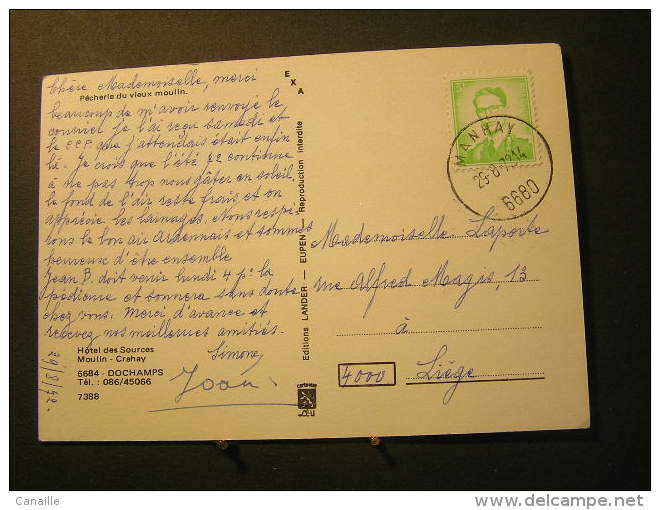 Chère Mademoiselle, merci
Pêcherie du vieux moulin.
beaucoup de m'avoir renvoyé le
courrier je l'ai reçu samedi et
le CCP que j'attendais était enfin
là. Je crois que l'été 72 continue
à ne pas trop nous gâter en soleil,
le fond de l'air reste frais et on
apprécie les lainages. Nous respi-
rons le bon air Ardennais et sommes
heureux d'être ensemble
Jean B. doit venir lundi 4 pr la
pédicure et sonnera sans doute
chez vous. Merci d'avance et
recevez nos meilleures amitiés.
Simone
Jean
29/8/72.
Hôtel des Sources
Moulin - Crahay
6684 - DOCHAMPS
Tél. : 086/45066
7388
EXA
Editions LANDER — EUPEN — Reproduction interdite
MANHAY
29-8-72 14
6680
Mademoiselle Laporte
rue Alfred Magis, 13
à
4000 Liège
Canaille
http://www.delcampe.net